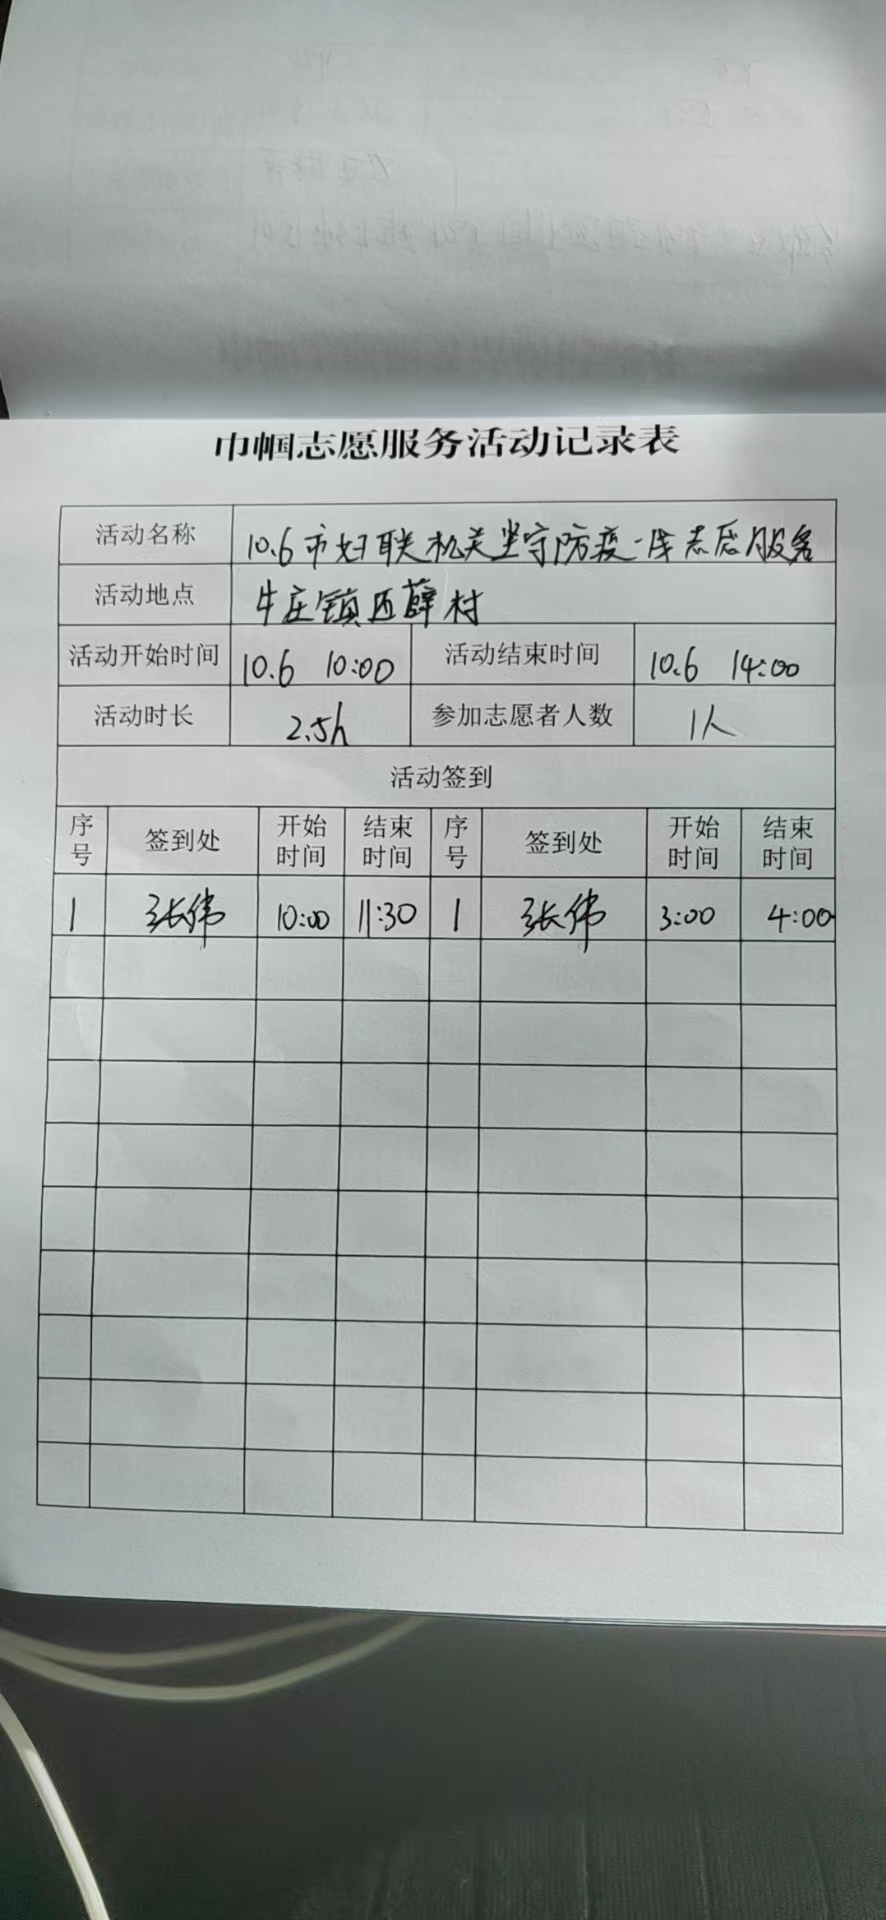 巾帼志愿服务活动记录表
活动名称 10.6市妇联机关坚守防疫一线志愿服务
活动地点 牛庄镇西薛村
活动开始时间 10.6 10:00 活动结束时间 10.6 14:00
活动时长 2.5h 参加志愿者人数 1人
活动签到
序号 签到处 开始时间 结束时间 序号 签到处 开始时间 结束时间
1 张伟 10:00 11:30 1 张伟 3:00 4:00